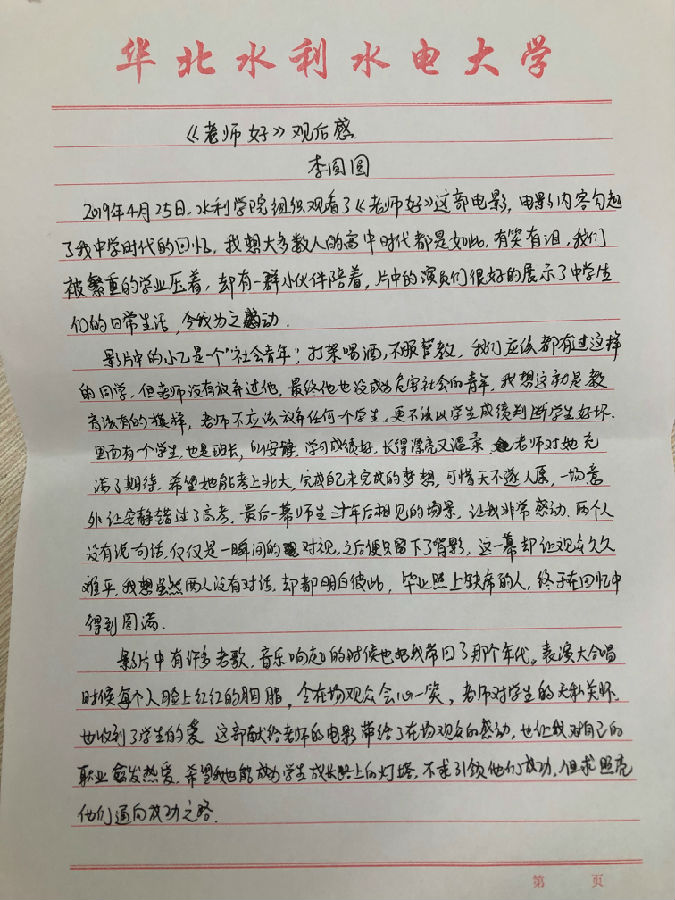 华北水利水电大学
《老师好》观后感
李圆圆
2019年4月25日,水利学院组织观看了《老师好》这部电影,电影内容勾起
了我中学时代的回忆,我想大多数人的高中时代都是如此,有笑有泪,我们
被繁重的学业压着,却有一群小伙伴陪着,片中的演员们很好的展示了中学生
们的日常生活,令我为之感动.
影片中的小乙是一个"社会青年",打架喝酒,不服管教,我们应该都有过这样
的同学.但老师没有放弃过他,最终他也没成为危害社会的青年,我想这就是教
育该有的模样,老师不应该放弃任何一个学生,更不该以学生成绩判断学生好坏.
里面有一个学生,也是班长,叫安静,学习成绩好,长得漂亮又温柔,老师对她充
满了期待.希望她能考上北大,完成自己未完成的梦想,可惜天不遂人愿,一场意
外让安静错过了高考,最后一幕师生二十年后相见的场景,让我非常感动.两个人
没有说一句话,仅仅是一瞬间的对视,之后便只留下了背影,这一幕却让观众久久
难平,我想虽然两人没有对话,却都明白彼此,毕业照上缺席的人,终于在回忆中
得到圆满.
影片中有许多老歌,音乐响起的时候也把我带回了那个年代。表演大合唱
时候每个人脸上红红的胭脂,令在场观众会心一笑,老师对学生的无私关怀
也收到了学生的爱.这部献给老师的电影带给了在场观众的感动,也让我对自己的
职业愈发热爱.希望我也能成为学生成长路上的灯塔,不求引领他们成功,但求照亮
他们通向成功之路.
第 页